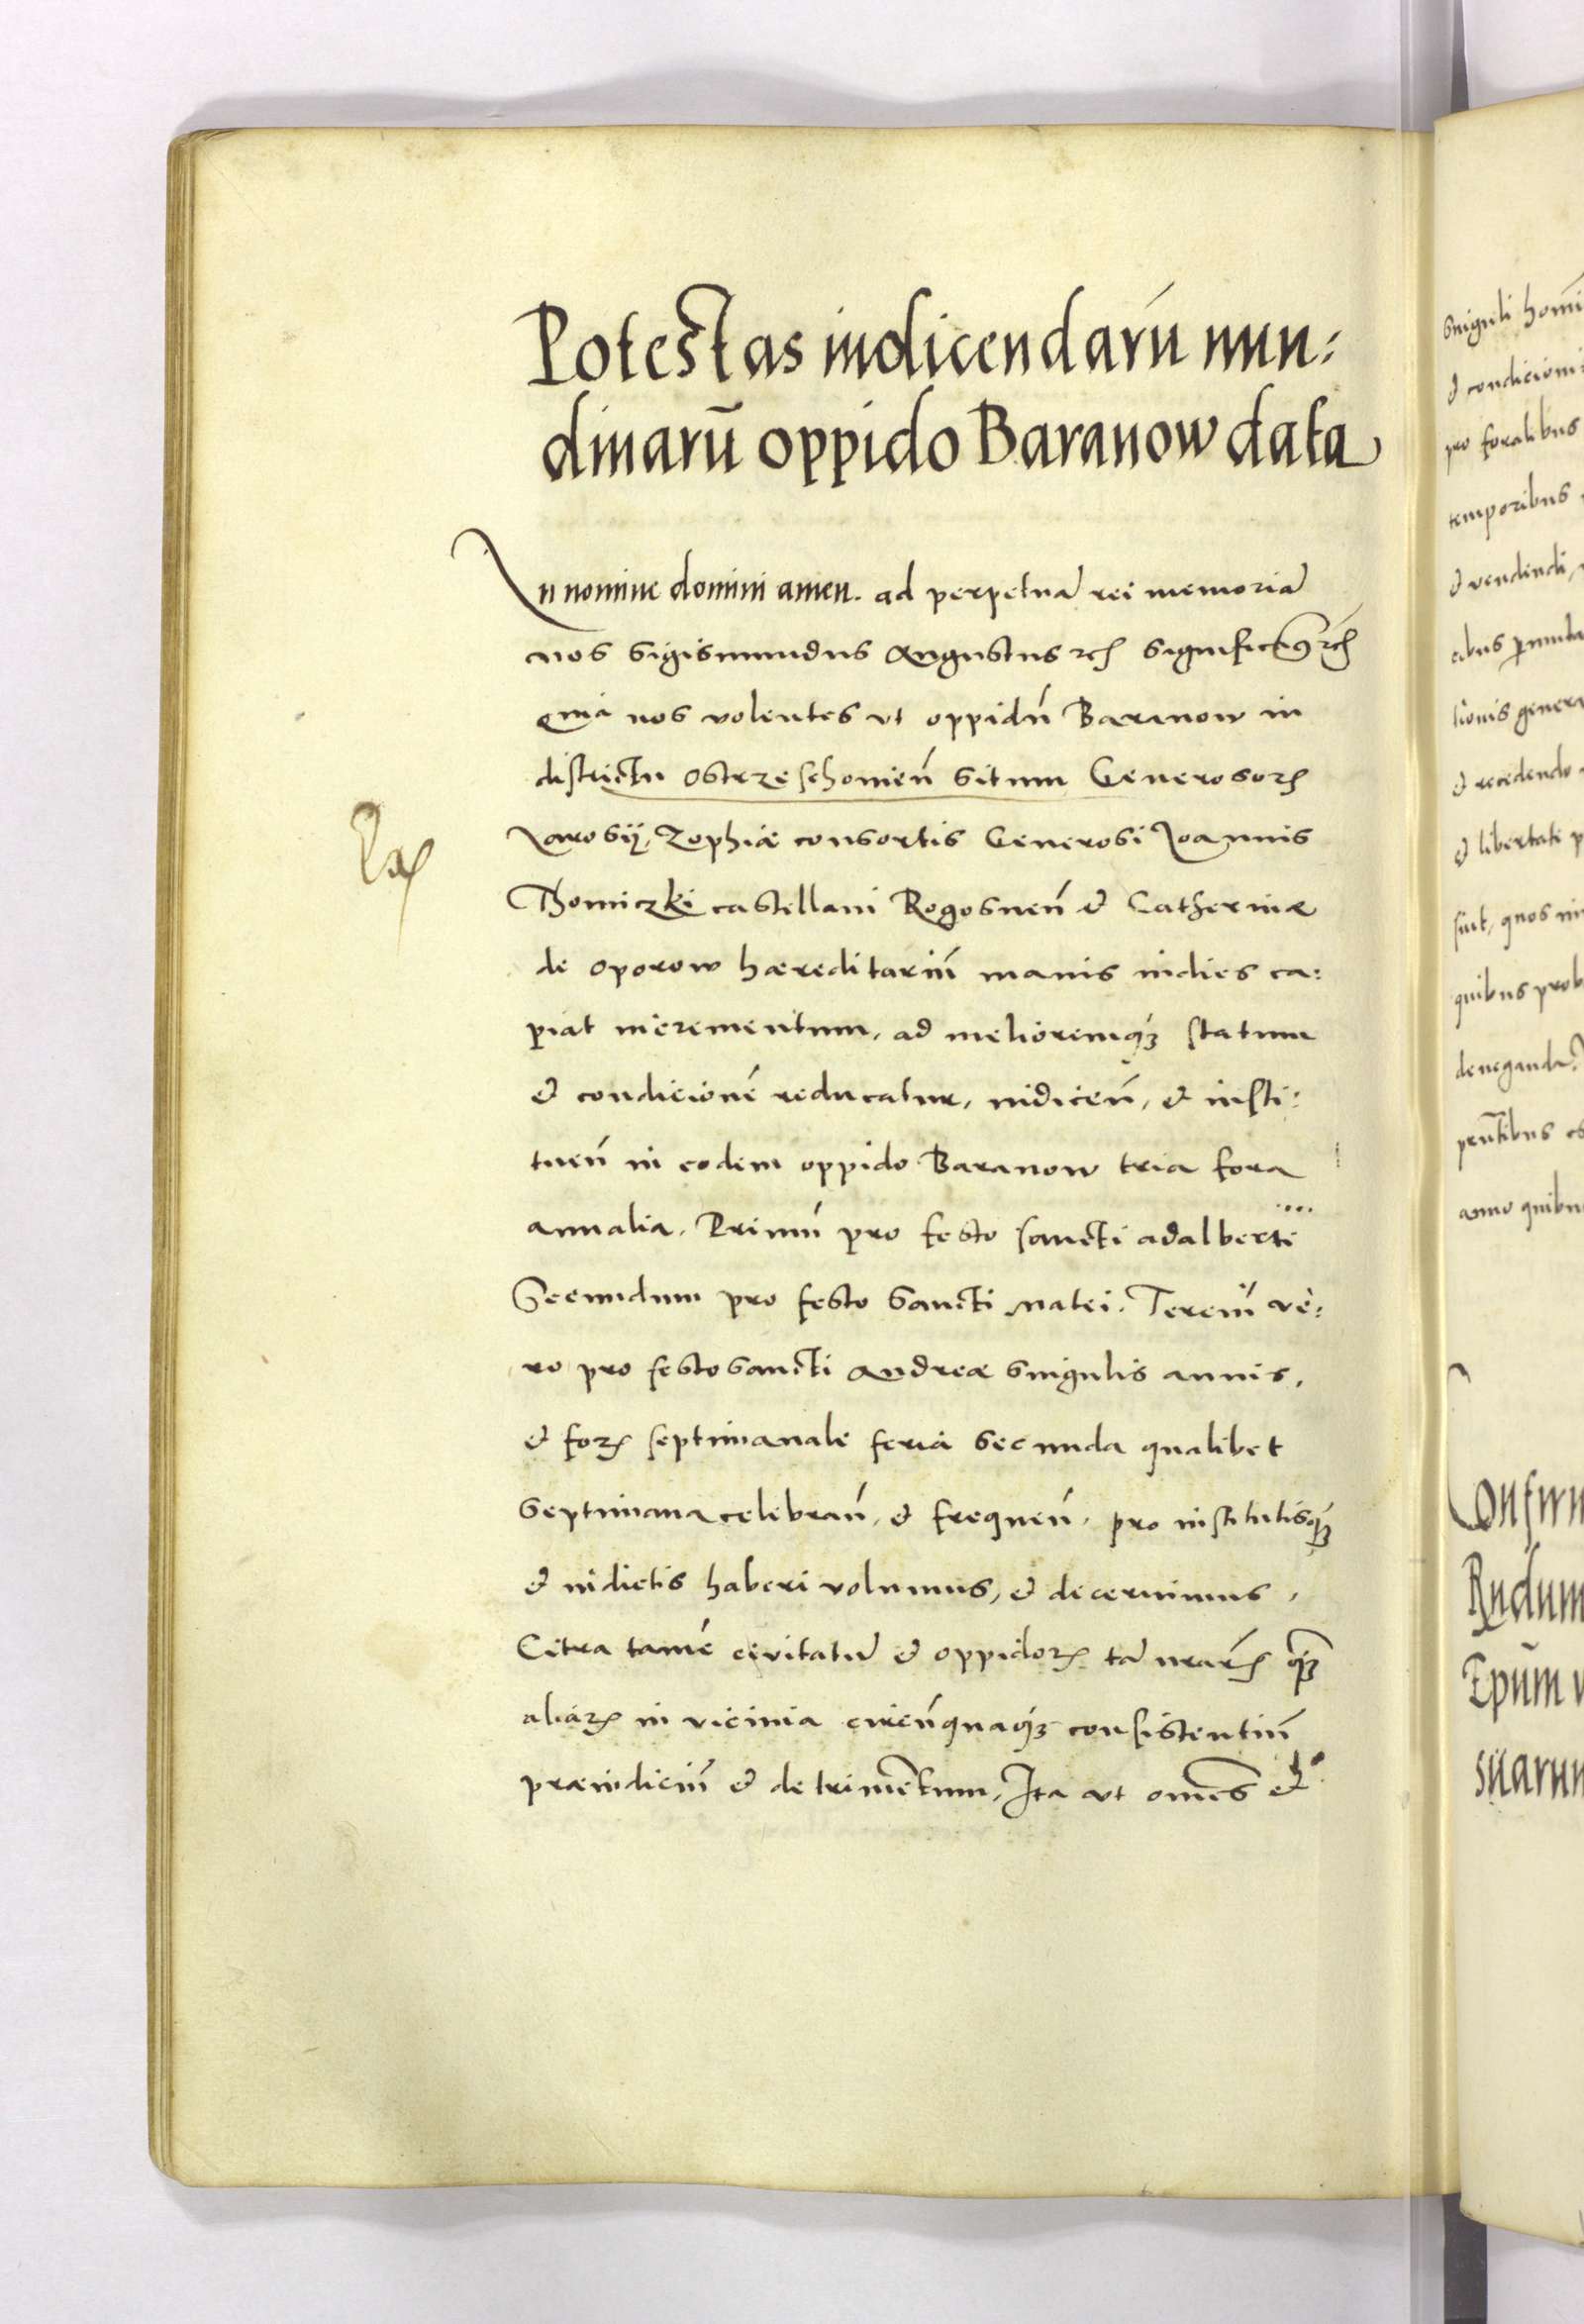 Potestas indicendarũ nun:
dinarũ oppido Baranow data
In nomine domini amen. ad perpetuã rei memoriã
nos Sigismundus Augustus
quia nos volentes ut oppidũ Baranow in
districtu Ostrzeschomieñ situm Generosorꝝ
Jarosij, Zophiæ consortis Generosi Joannis
Thomiczki castellani Rogosneñ et Catherinæ
de Oporow hæreditariũ maius indies ca:
piat incrementum, ad melioremqꝫ statum
et condicionẽ reducatur, indiceñ, et insti:
tueñ in eodem oppido Baranow tria fora
annalia. Primũ pro festo sancti adalberti
Secundum pro festo Sancti Matei. Terciũ ve:
ro pro festo Sancti Andreæ singulis annis,
et forꝝ septimanale feria secunda qualibet
Septimana celebrañ, et frequeñ, pro institutisqꝫ
et indictis haberi volumus, et decernimus,
Citra tamẽ civitatũ et oppidorꝝ tã nrarꝝ qꝫ
aliarꝝ in vicinia circũquaqꝫ consistentiũ
præiudiciũ et detrimẽtum, Ita ut omẽs et
singuli
et condicioni
pro foralibus
temporibus
et vendendi,
tionis gener
et recedendo
et libertate p
sint, quos
quibus prob
deneganda.
prñtibus
anno quibus
Confirm
Rudum
Epũm
suarum